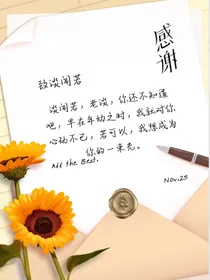 感谢
致谈闻若
谈闻若，老谈，你还不知道
吧，早在年幼之时，我就对你
心动不已，若可以，我想成为
你的一束光。
Add the Best.
Nov.25